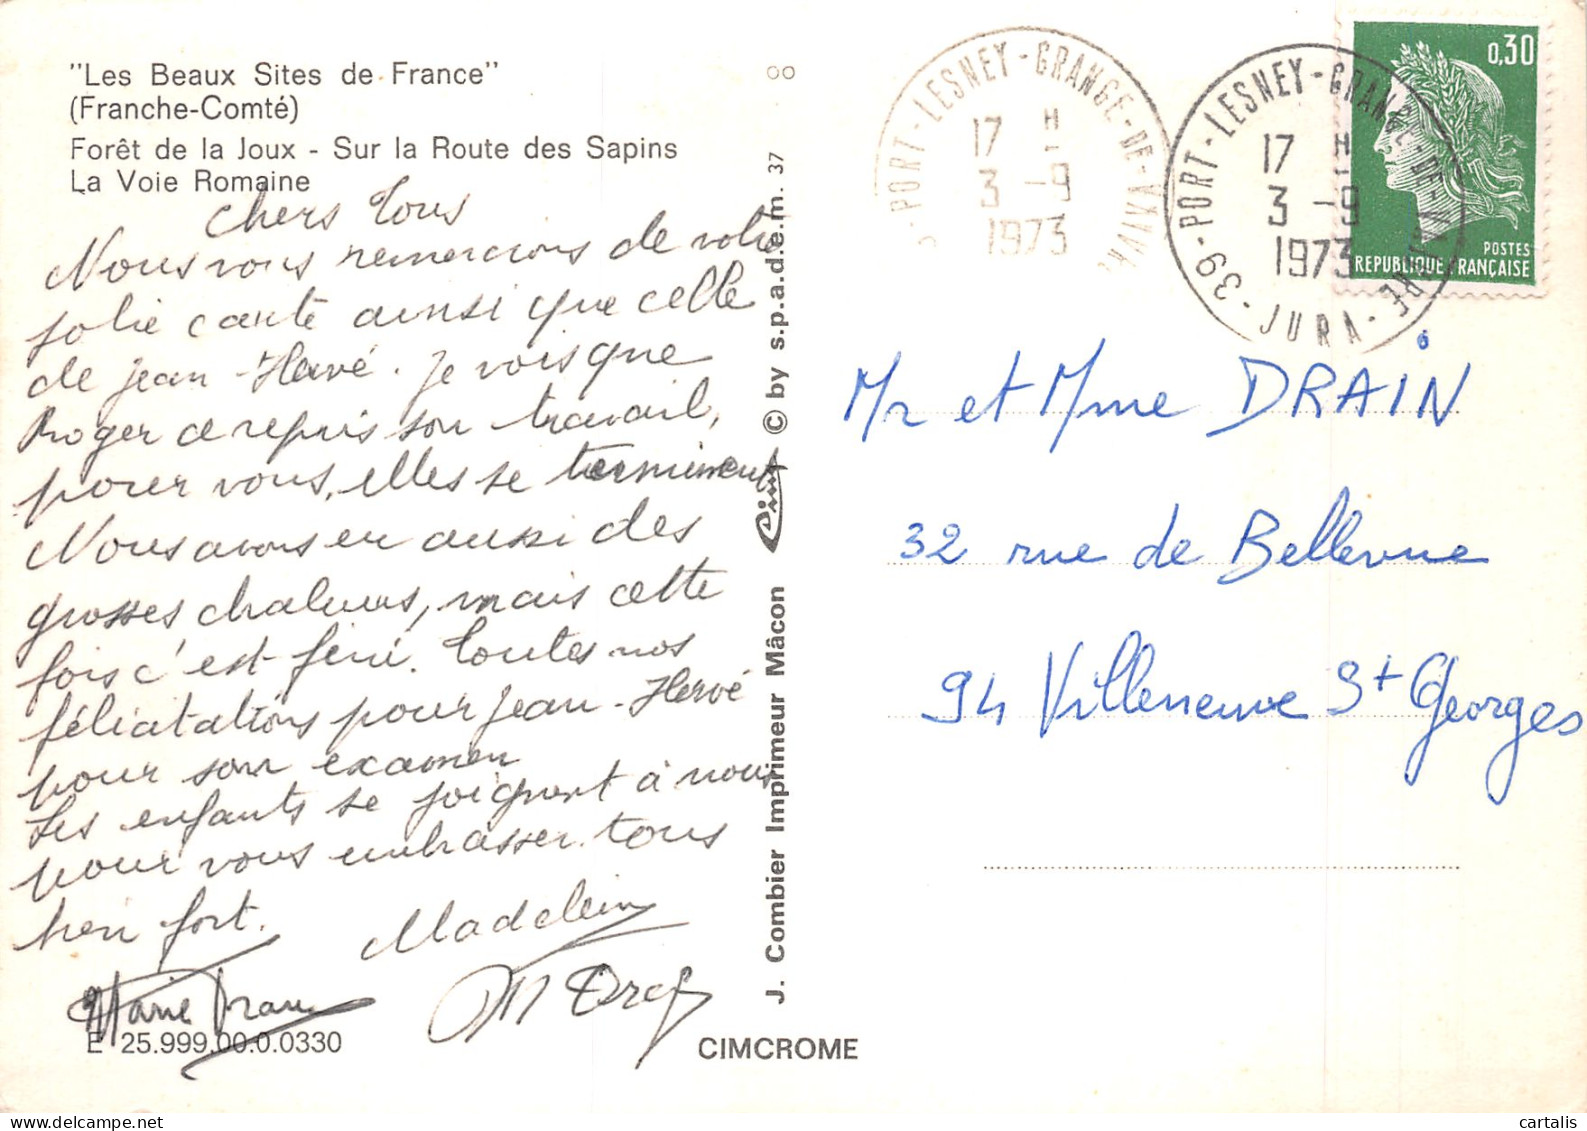 "Les Beaux Sites de France"
(Franche-Comté)
Forêt de la Joux - Sur la Route des Sapins
La Voie Romaine
Chers Tous
Nous vous remercions de votre
jolie carte ainsi que celle
de Jean-Hervé. Je vois que
Roger a repris son travail,
pour vous, elles se terminent
Nous avons eu aussi des
grosses chaleurs, mais cette
fois c'est fini. Toutes nos
félicitations pour Jean-Hervé
pour son examen
Les enfants se joignent à nous
pour vous embrasser tous
bien fort.
Madeleine
Marie
E 25.999.00.0.0330
CIMCROME
J. Combier Imprimeur Mâcon Cim © by s.p.a.d.e.m. 37
PORT-LESNEY-GRANGE-DE-VAIVRE
17 H
3 -9
1973
39-PORT-LESNEY-GRANGE-DE-VAIVRE-JURA-
17 H
3 -9
1973
0,30
POSTES
REPUBLIQUE FRANÇAISE
Mr et Mme DRAIN
32 rue de Bellevue
94 Villeneuve St Georges
cartalis